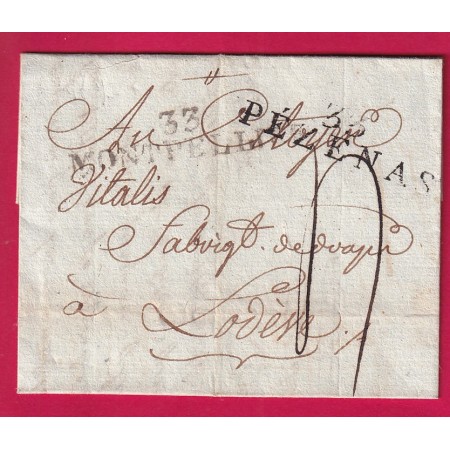 33
MONTPELLIER
33
PÉZENAS
Au Citoyen
Vitalis
Fabriqt. de draps
à
Lodève